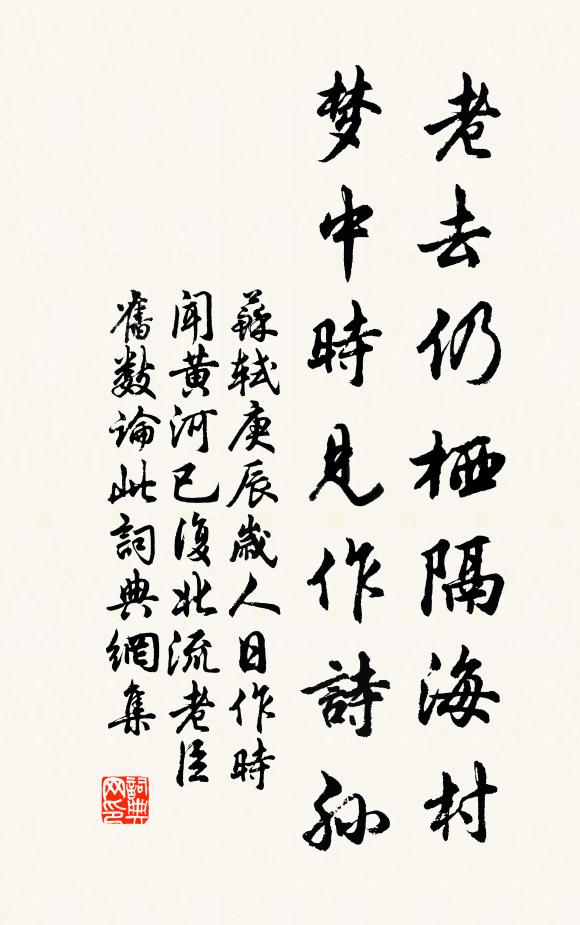 老去仍栖隔海村
梦中時見作詩孫
蘇軾庚辰歲人日作時
聞黄河已復北流老臣
舊数論此詞典網集
詞典网印